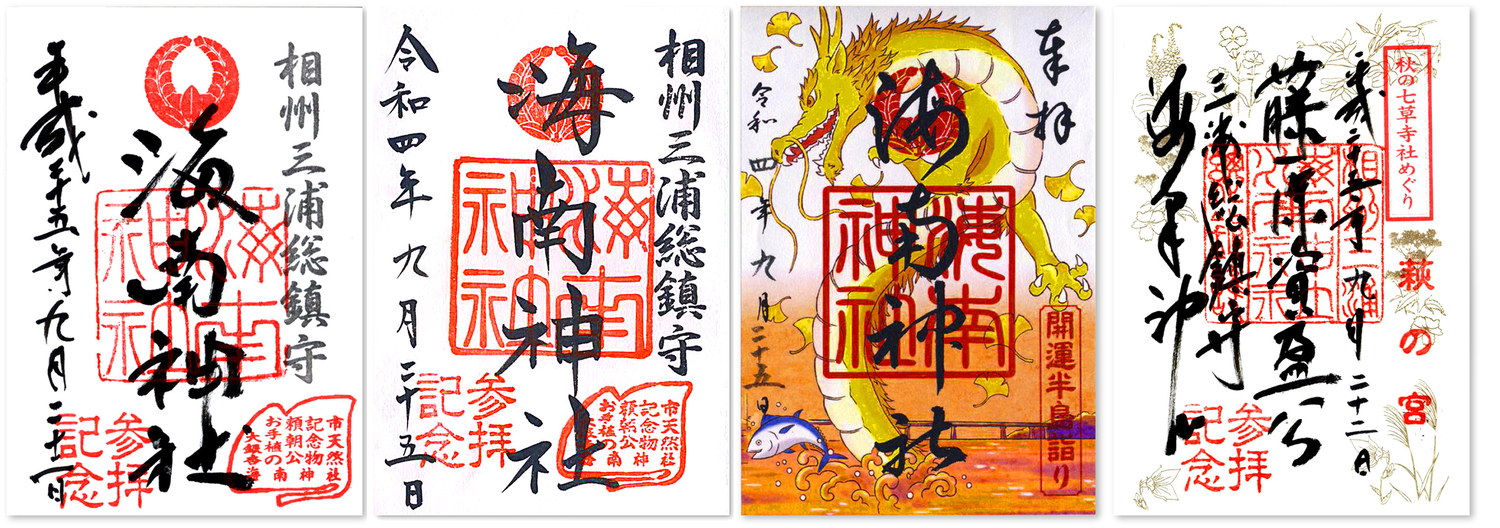 相州三浦総鎮守
海南神社
平成二十五年九月二十二日
海南
神社
参拝
記念
市天然社
記念物神
頼朝公
お手植の南
相州三浦総鎮守
海南神社
令和四年九月二十五日
海南
神社
参拝
記念
市天然社
記念物神
頼朝公
お手植の南
奉拝
海南神社
令和四年九月二十五日
海南
神社
開運半島詣り
秋の七草寺社めぐり
萩の宮
平成二十五年九月二十二日
藤原資盈公
三浦総鎮守
海南神社
参拝
記念